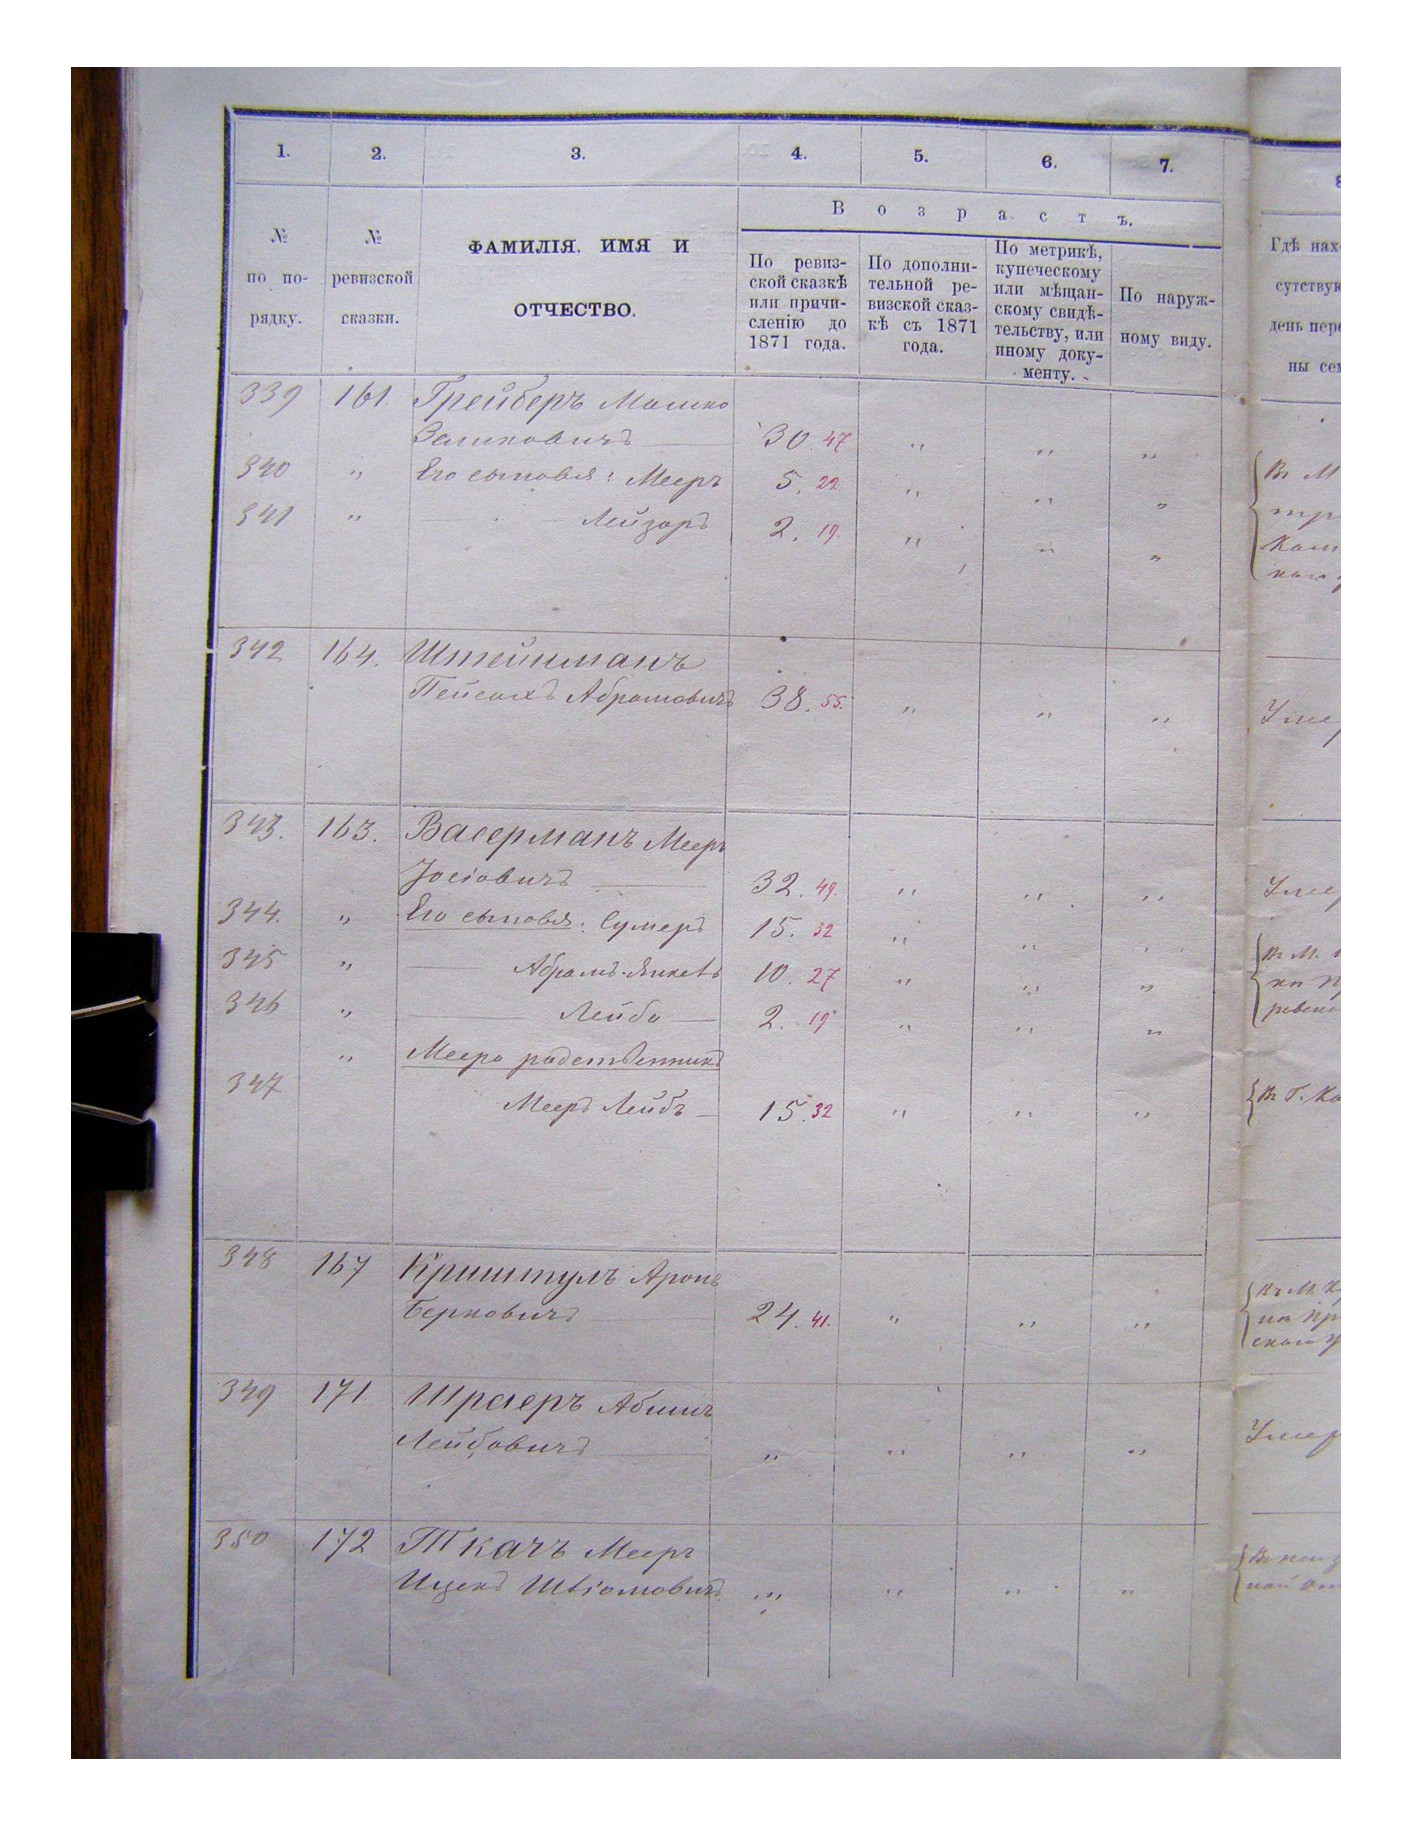 1. 2. 3. 4. 5. 6. 7. 8
В о з р а с т ъ.
№ по по-рядку.
№ ревизской сказки.
ФАМИЛІЯ, ИМЯ И
ОТЧЕСТВО.
По ревиз-
ской сказкѣ
или причи-
сленію до
1871 года.
По дополни-
тельной ре-
визской сказ-
кѣ съ 1871
года.
По метрикѣ,
купеческому
или мѣщан-
скому свидѣ-
тельству, или
иному доку-
менту.
По наруж-
ному виду.
Гдѣ нах
сутствую
день пере
ны сем
339 161. Грейберъ Мошко
Зельковичъ 30. 47 " " "
340 " Его сыновья: Мееръ 5. 22 " " "
341 " Лейзоръ 2. 19. " " "
Въ М
342 164. Штейнманъ
Пейсахъ Абрамовичъ 38. 55. " " "
Умер
343. 163. Васерманъ Мееръ
Іосіовичъ 32. 49. " " "
Умер
344. " Его сыновья: Сумеръ 15. 32 " " "
345 " Абрамъ-Янкель 10. 27 " " "
346 " Лейба 2. 19 " " "
Въ М.
" Меера родственникъ
347 Мееръ Лейбъ 15. 32 " " "
Въ Г. Ка
348 167 Криштулъ Аронъ
Берковичъ 24. 41. " " "
Въ М.
на пр
скаго у
349 171 Шраеръ Абишъ
Лейбовичъ " " " "
Умер
350 172 Ткачъ Мееръ
Ицекъ Шліомовичъ " " " "